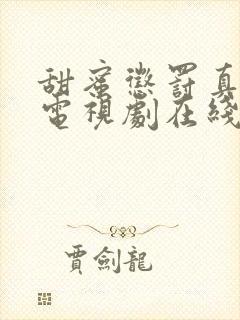 甜蜜懲罰真
電視劇在綫
賈劍龍